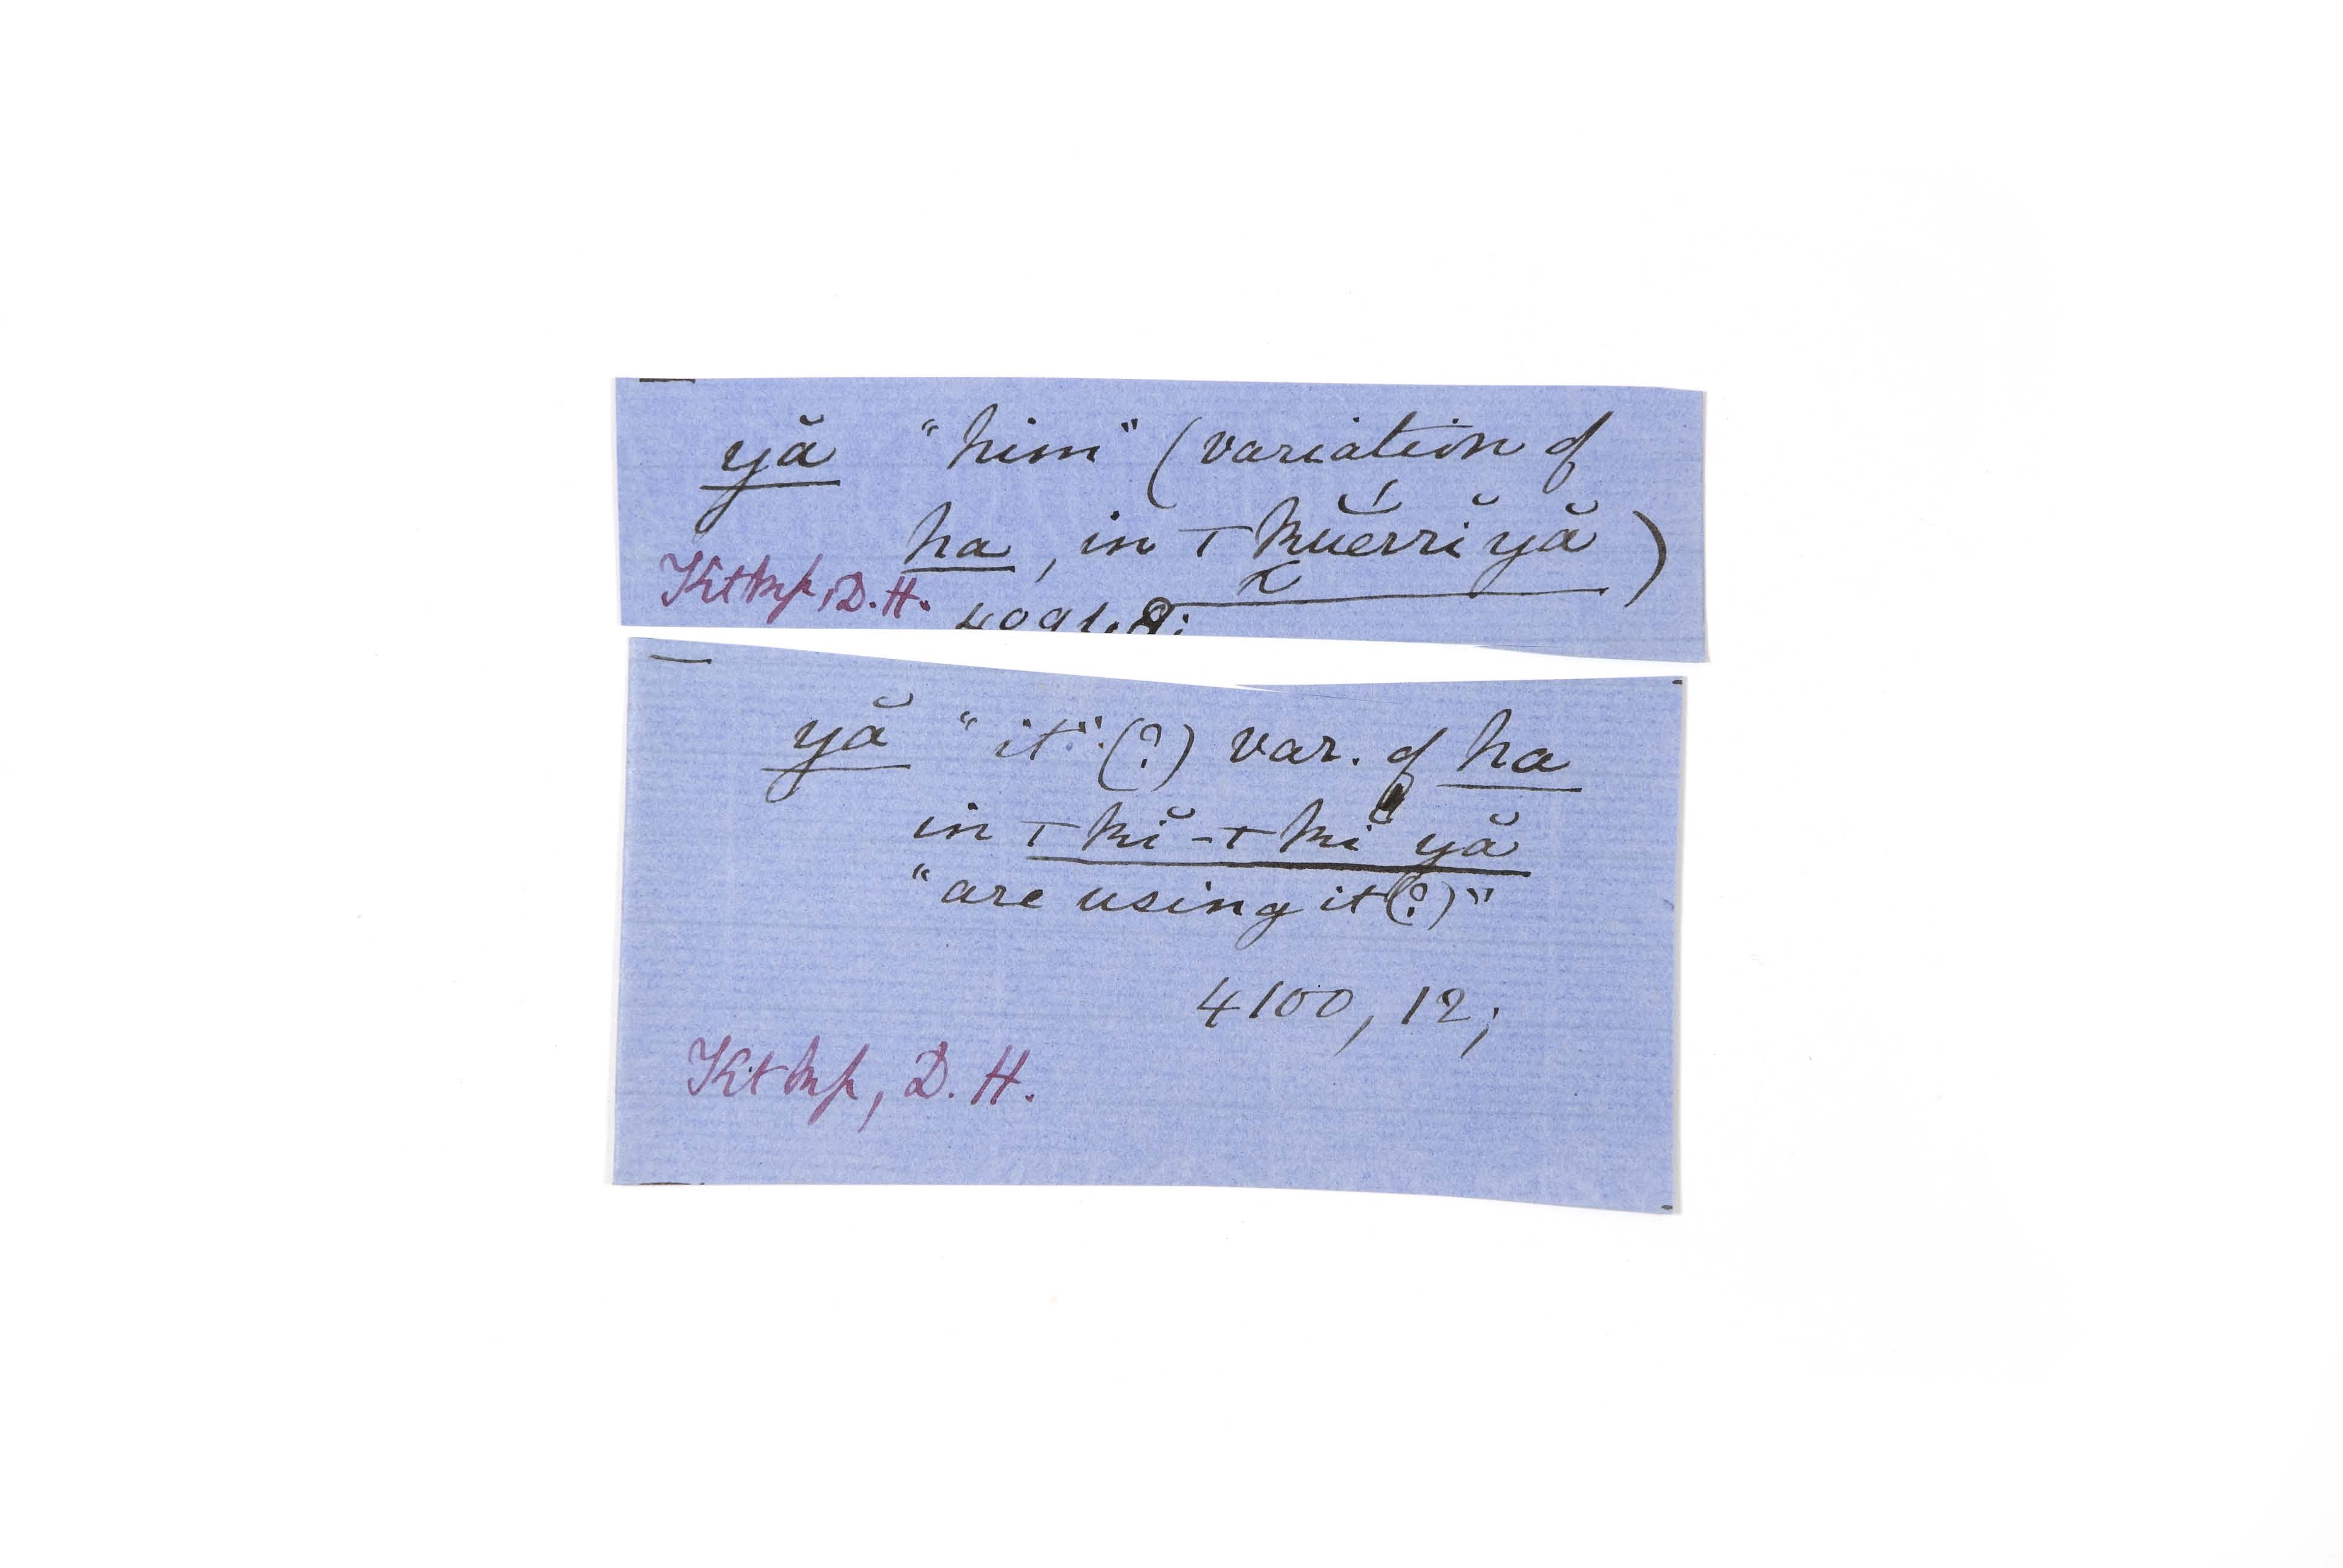 yă "him" (variation of
ha, in ⊤ k̆uérrĭ yă)
Ktkp, D. H. 4091, 9;
yă "it" (?) var. of ha
in ⊤ kĭ-⊤ kĭ yă
"are using it (?)"
4100, 12;
Ktkp, D. H.